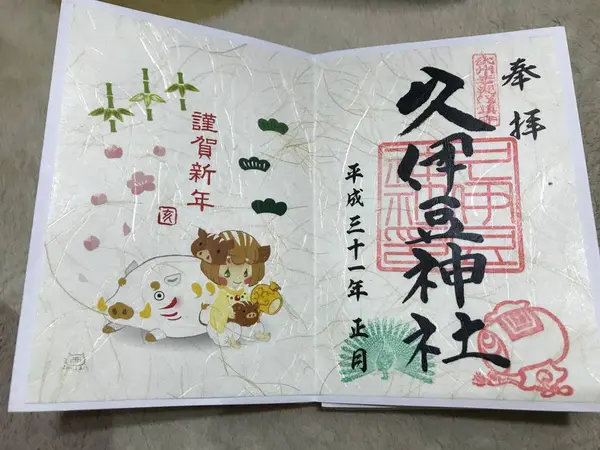 奉拝
久伊豆神社
平成三十一年 正月
謹賀新年
亥